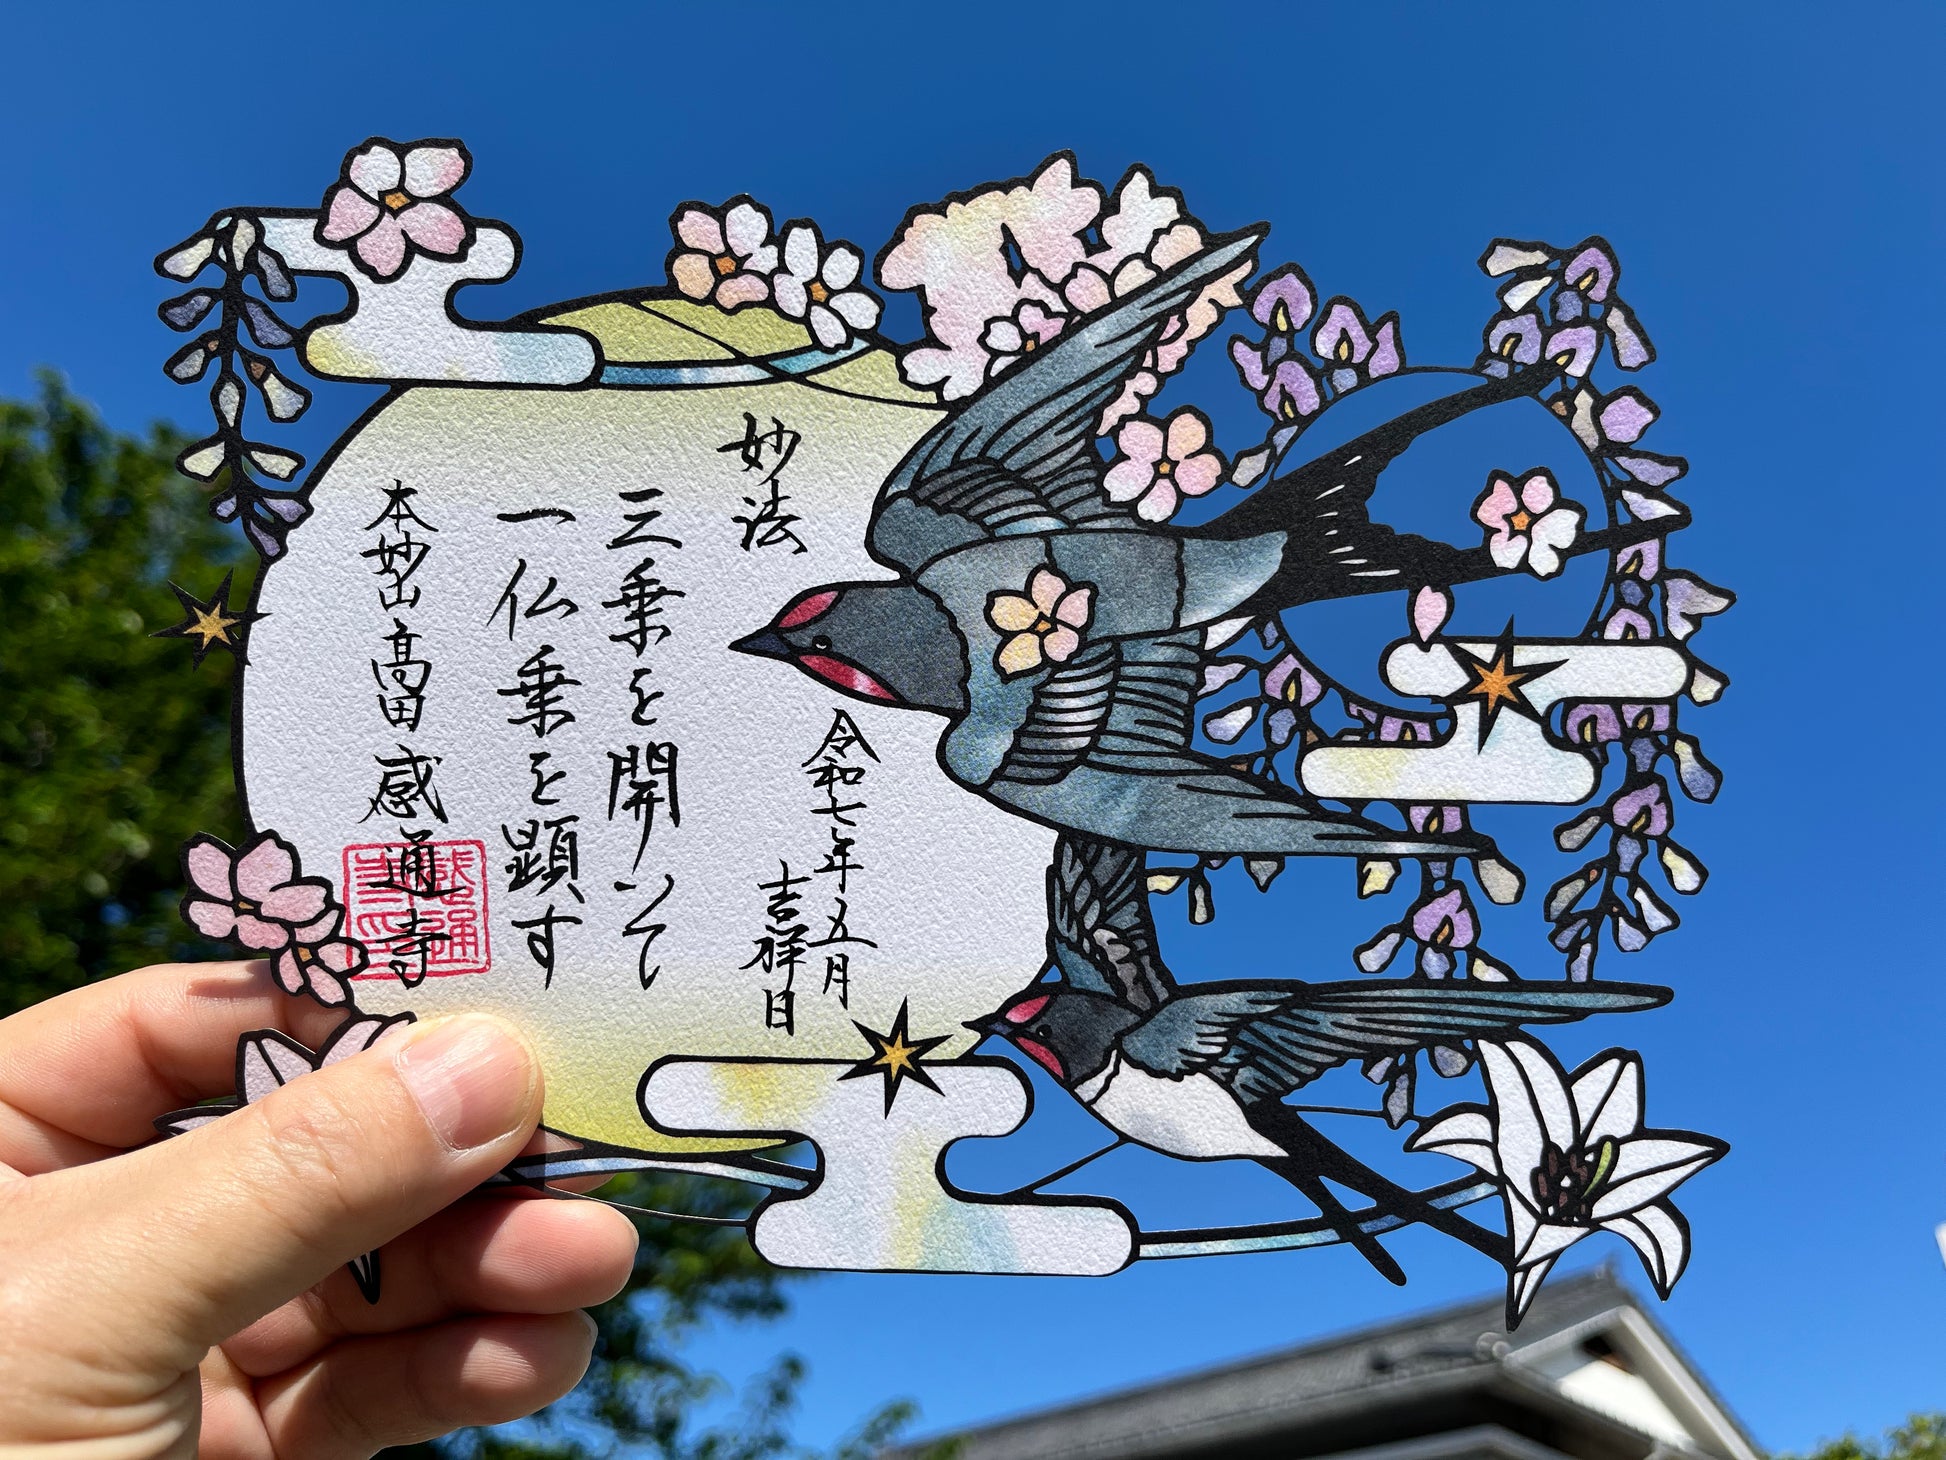 妙法
令和七年五月
吉祥日
三乗を開いて
一仏乗を顕す
本妙山高田感通寺